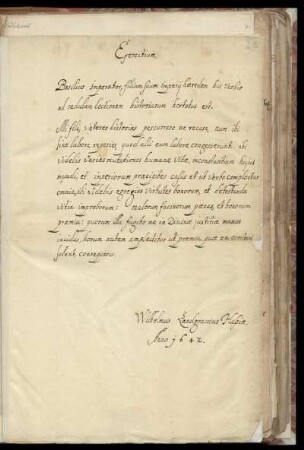 Exercitium
Basilius Imperator, filium suum Imperij haeredem his verbis
ad sedulam lectionem historiarum hortatus est.
Mi fili, veteres historias percurrere ne recusa, nam ibi
sine labore reperies quod alij cum labore congesserunt: ibi
videbis varias mutationes humanae vitae, inconstantiam hujus
mundi, et imperiorum praecipites casus et ut verbo complectar
omnia, ibi videbis egregias virtutes bonorum, et detestanda
vitia improborum: malorum facinorum poenas, et bonorum
praemia: quorum illa fugito ne in Divinae justitiae manus
incidas, horum autem amplectitor ut praemia quae
solent, consequaris.
Wilhelmus Landgravius Hassiae
Anno 1642.